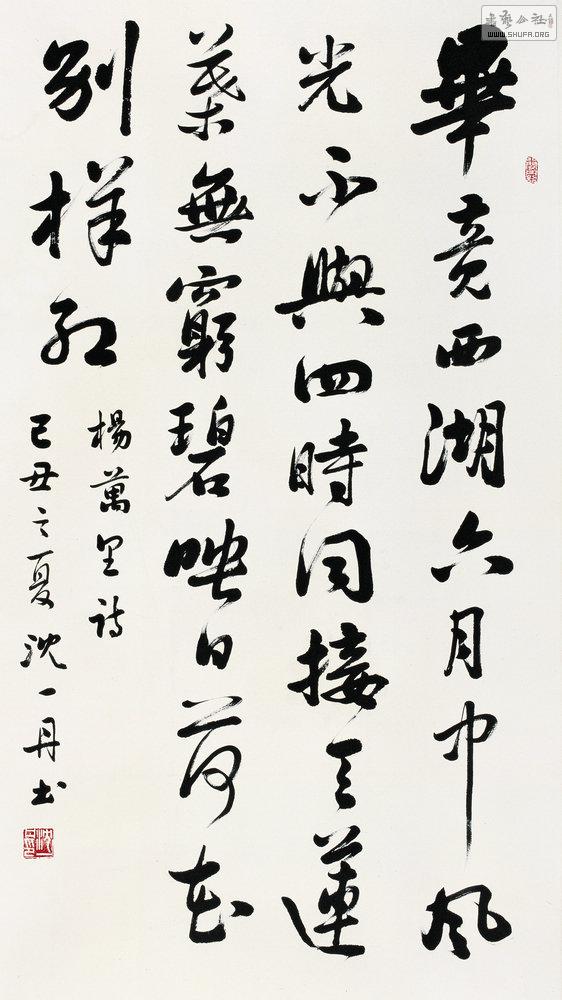 畢竟西湖六月中風
光不與四時同接天蓮
葉無窮碧映日荷花
別樣紅
楊萬里詩
己丑之夏沈一丹书
WWW.SHUFA.ORG